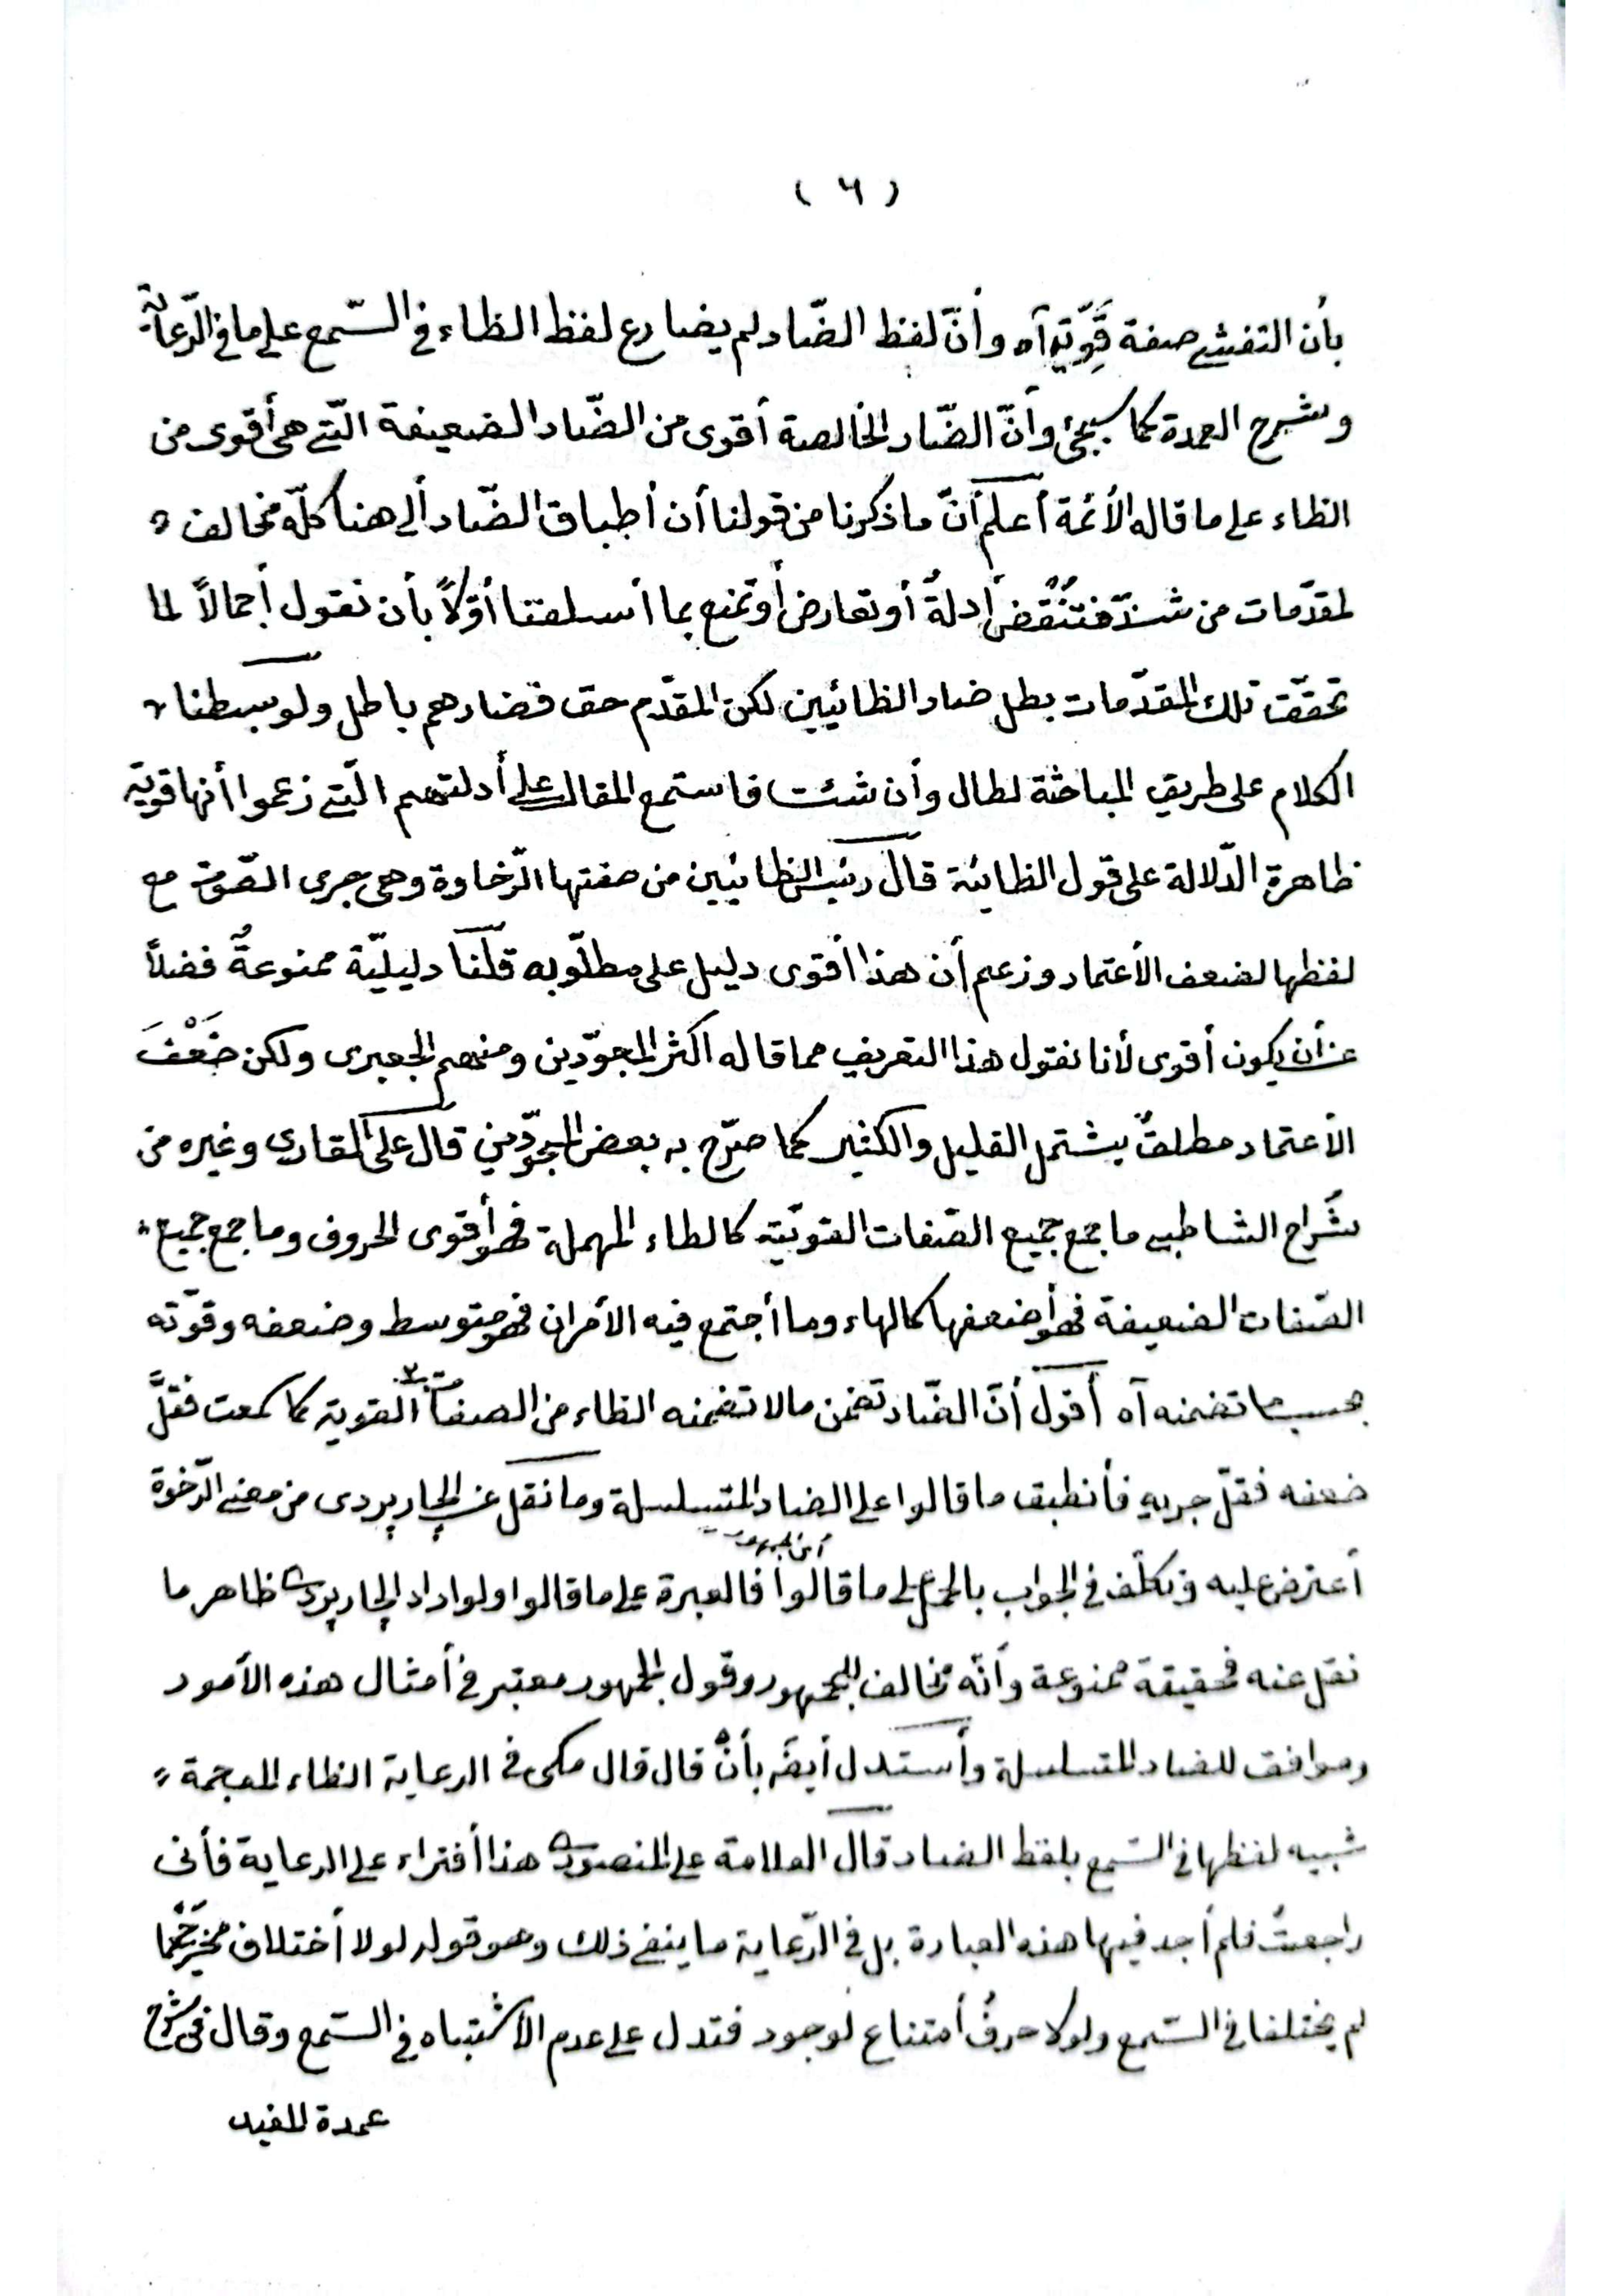 ( ٦ )
بأن التفشي صفة قَوِّية آه وأنّ لفظ الضّاد لم يضارع لفظ الظاء في السّمع على ما في الرّعاية
وشرح العمدة كما سيجئ وأنّ الضّاد الخالصة أقوى من الضّاد الضعيفة الّتي هى أقوى من
الظاء على ما قاله الأئمة أعلم أنّ ما ذكرنا من قولنا أن أطباق الضّاد ألى هنا كلّه مخالف
لمقدّمات من شذّ فتُنْقض أدلةُ أو تعارض أو تمنع بما أسلفتنا أوّلاً بأن نقول أجمالاً لما
تحققت تلك المقدّمات بطل ضاد الظائيين لكن المقدّم حق فضادهم باطل ولو بسطنا
الكلام على طريق المباحثة لطال وأن شئت فاستمع المقال على أدلتهم الّتي زعموا أنها قويّة
ظاهرة الدّلالة على قول الظائية قال رئيس الظائيين من صفتها الرّخاوة وهى جرى الصّوت مع
لفظها لضعف الأعتماد وزعم أن هذا أقوى دليل على مطلّوبه قلنا دليليّة ممنوعةٌ فضلاً
عن أن يكون أقوى لأنا نقول هذا التعريف مما قاله اكثر المجوّدين ومنهم الجعبرى ولكن ضَعْفَ
الأعتماد مطلقٌ يشتمل القليل والكثير كما صرّح به بعض المجوّدين قال على القارى وغيره من
شُراح الشاطبي ما جمع جميع الصّفات القويّة كالطاء المهملة فهو أقوى الحروف وما جمع جميع
الصّفات الضعيفة فهو أضعفها كالهاء وما أجتمع فيه الأمران فهو متوسط وضعفه وقوّته
بحسب ما تضمنه آه أقول أنّ الضّاد تضمن ما لا تضمنه الظاء من الصفات القوية كما سمعت فقلَّ
ضعفه فقلّ جريه فأنطبق ما قالوا على الضاد المتسلسلة وما نقل عن الچارپردى من معنى الرّخوة
أعترض عليه وتكلّف في الجواب بالحمل على ما قالوا فالعبرة على ما قالوا ولو اراد الچارپردى ظاهر ما
أى الجمهور
نقل عنه فحقيقة ممنوعة وأنّه مخالف للجمهور وقول الجمهور معتبر في أمثال هذه الأمود
وموافق للضاد المتسلسلة وأستدل أيضً بأنْ قال قال مكى في الرعاية الظاء المعجمة
شبيه لفظها في السّمع بلفظ الضاد قال العلامة على المنصورى هذا أفتراء على الرعاية فأنى
راجعتُ فلم أجد فيها هذه العبارة بل في الرّعاية ما ينفى ذلك وهو قوله لولا أختلاف مخرَجَيْهما
لم يختلفا في السّمع ولولا حرفُ أمتناع لوجود فتدل على عدم الأشتباه في السّمع وقال في شرح
عمدة المفيد